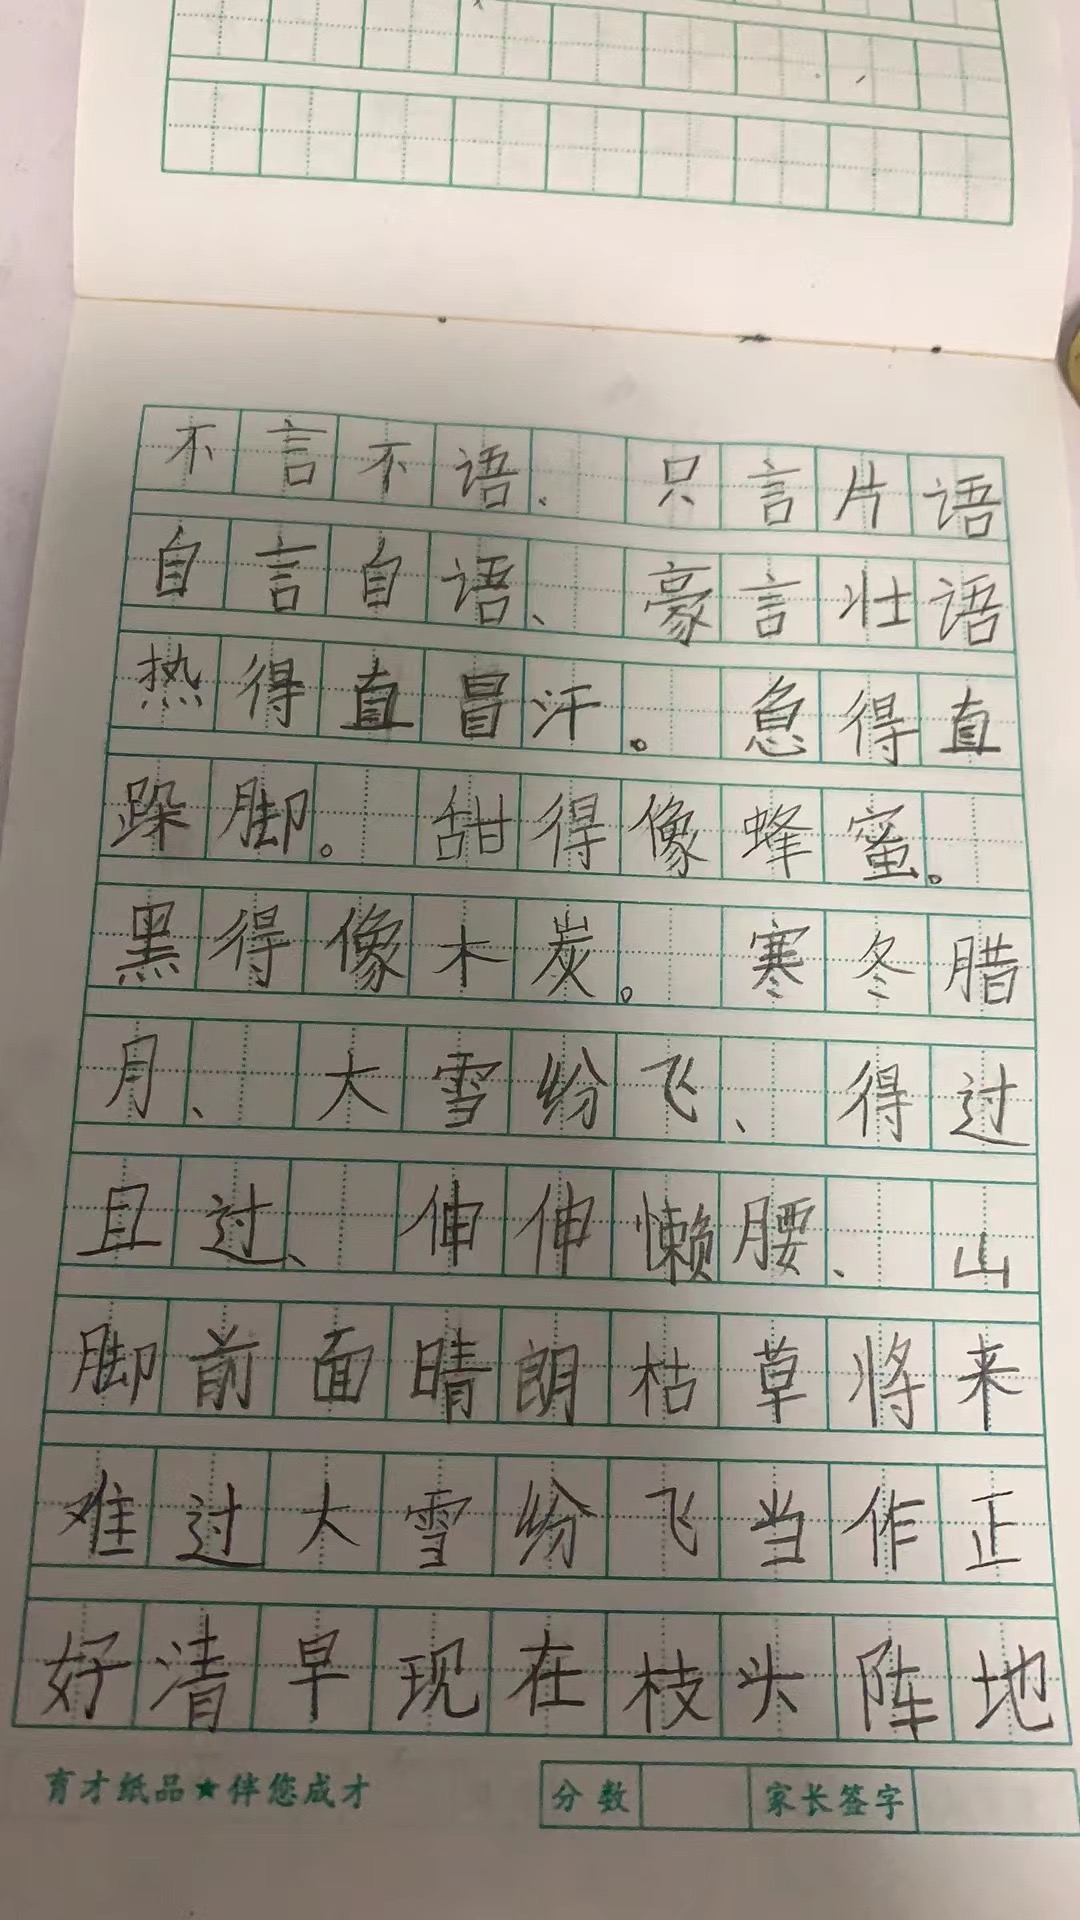 不言不语、只言片语
自言自语、豪言壮语
热得直冒汗。急得直
跺脚。甜得像蜂蜜。
黑得像木炭。寒冬腊
月、大雪纷飞、得过
且过、伸伸懒腰、山
脚前面晴朗枯草将来
难过大雪纷飞当作正
好清早现在枝头阵地
育才纸品★伴您成才 分数 家长签字